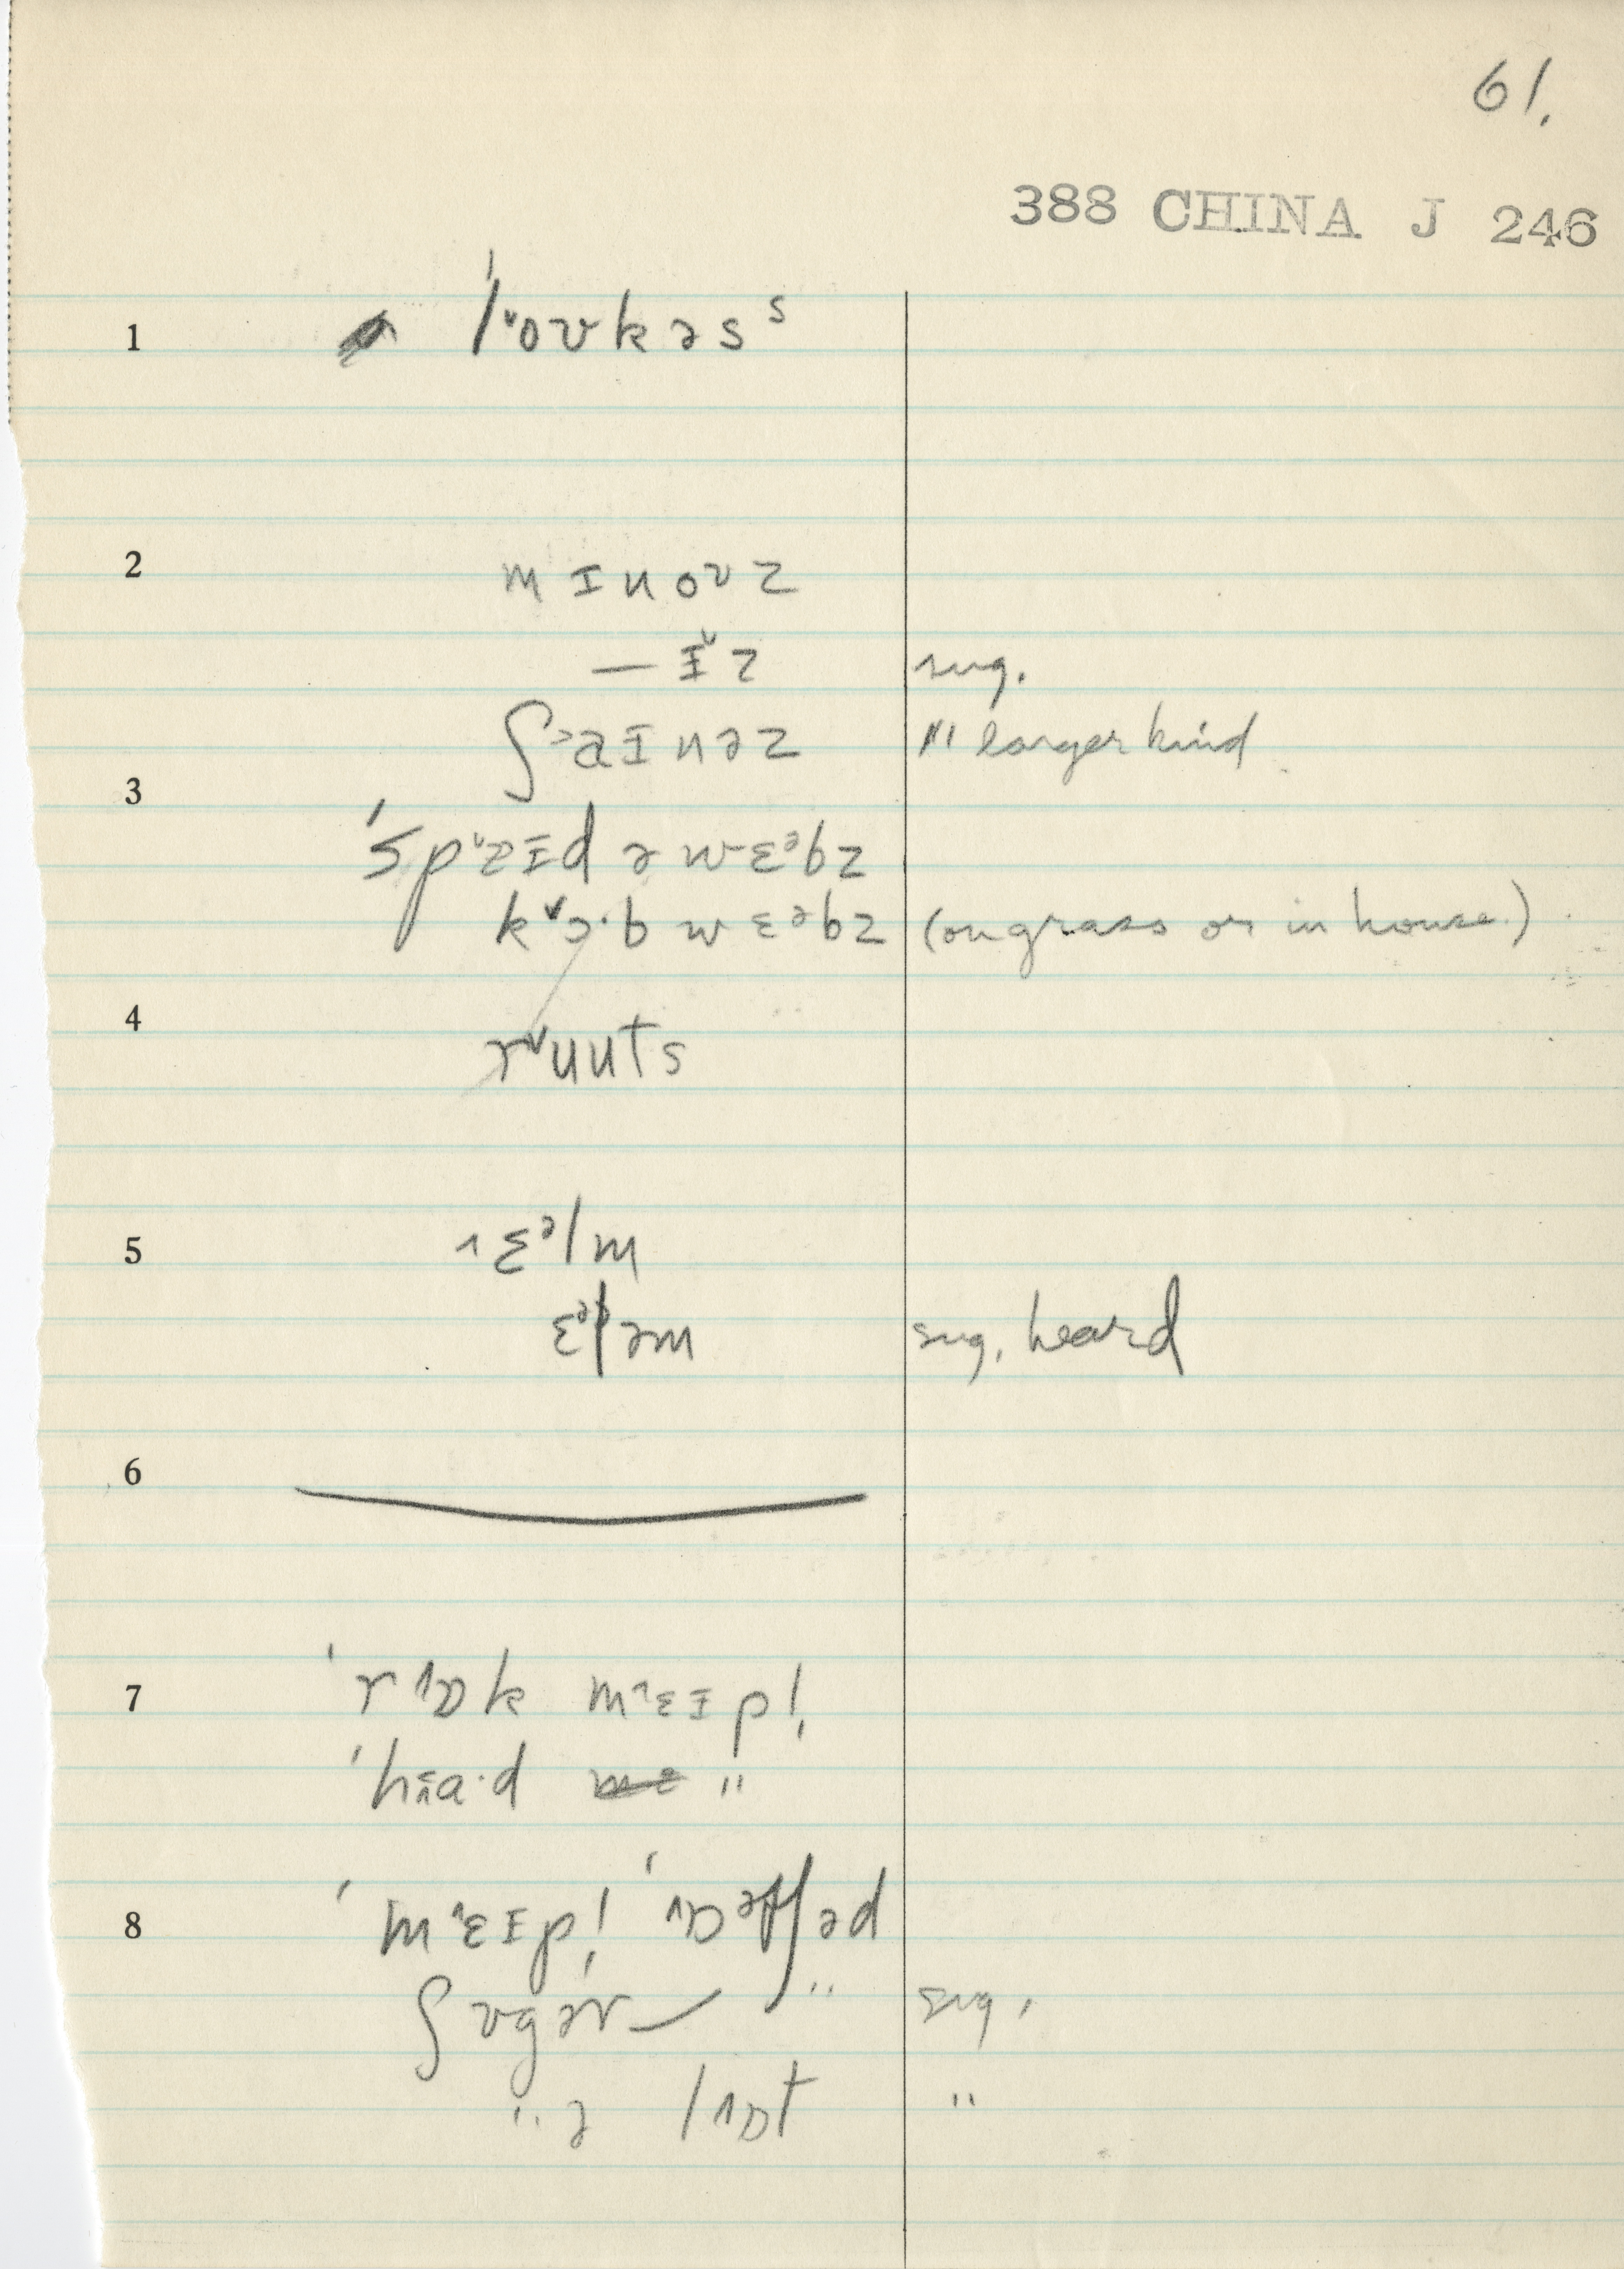 61.
388 CHINA J 246
1 ˈl˅oʊkəs ˢ
2 mɪnoʊz
— ɪ˅z sug.
ʃ˃aɪnəz " larger kind
3 ˈspɪd ə wɛᵊbz
k˅ɔ·b wɛᵊbz (on grass or in house.)
4 r˅uuts
5 ˄ɛᵊlm
ɛᵊləm sug. heard
6
7 ˈr˄ɒk m˄ɛɪpl̩
ˈh ɑ·d "
8 ˈm˄ɛɪpl̩ ˈ˄ɒ əd
ʃʊgər — " sug.
" ə l˄ɒt "